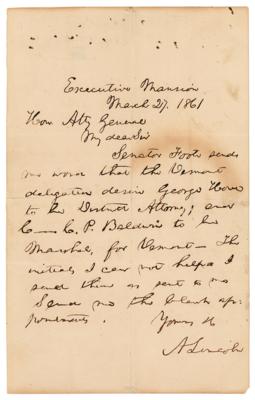 Executive Mansion
March 27, 1861
Hon. Atty General
My dear Sir
Senator Foote sends
me word that the Vermont
delegation desire George Howe
to be District Attorney; and
C. C. P. Baldwin to be
Marshal, for Vermont— The
initials I can not help; I
send them as sent to me
Send me the blank ap-
pointments.
Yours &c
A. Lincoln